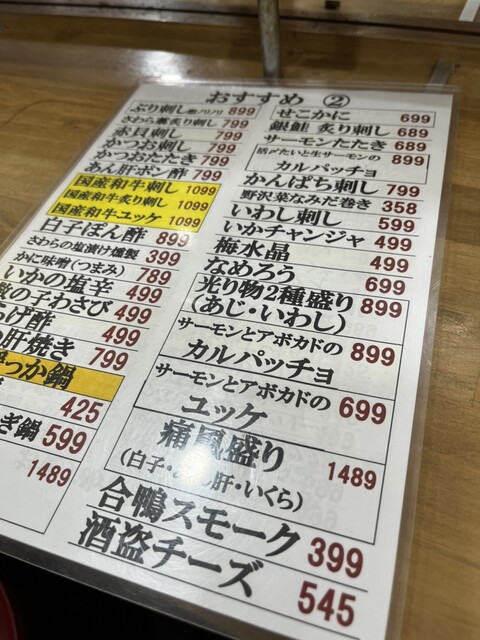 おすすめ ②
ぶり刺し 899
さわら藁炙り刺し 799
赤貝刺し 799
かつお刺し 799
かつおたたき 799
あん肝ポン酢 799
国産和牛刺し 1099
国産和牛炙り刺し 1099
国産和牛ユッケ 1099
白子ぽん酢 899
さわらの塩漬け燻製 399
かに味噌(つまみ) 789
いかの塩辛 499
の子わさび 499
げ酢 499
肝焼き 799
っか鍋
425
ぎ鍋 599
1489
せこかに 699
銀鮭 炙り刺し 689
サーモンたたき 689
活〆たいと生サーモンの
カルパッチョ 899
かんぱち刺し 799
野沢菜なみだ巻き 358
いわし刺し 599
いかチャンジャ 499
梅水晶 499
なめろう 499
光り物2種盛り
(あじ・いわし) 899
サーモンとアボカドの
カルパッチョ 899
サーモンとアボカドの
ユッケ 699
痛風盛り
(白子・ん肝・いくら) 1489
合鴨スモーク 399
酒盗チーズ 545